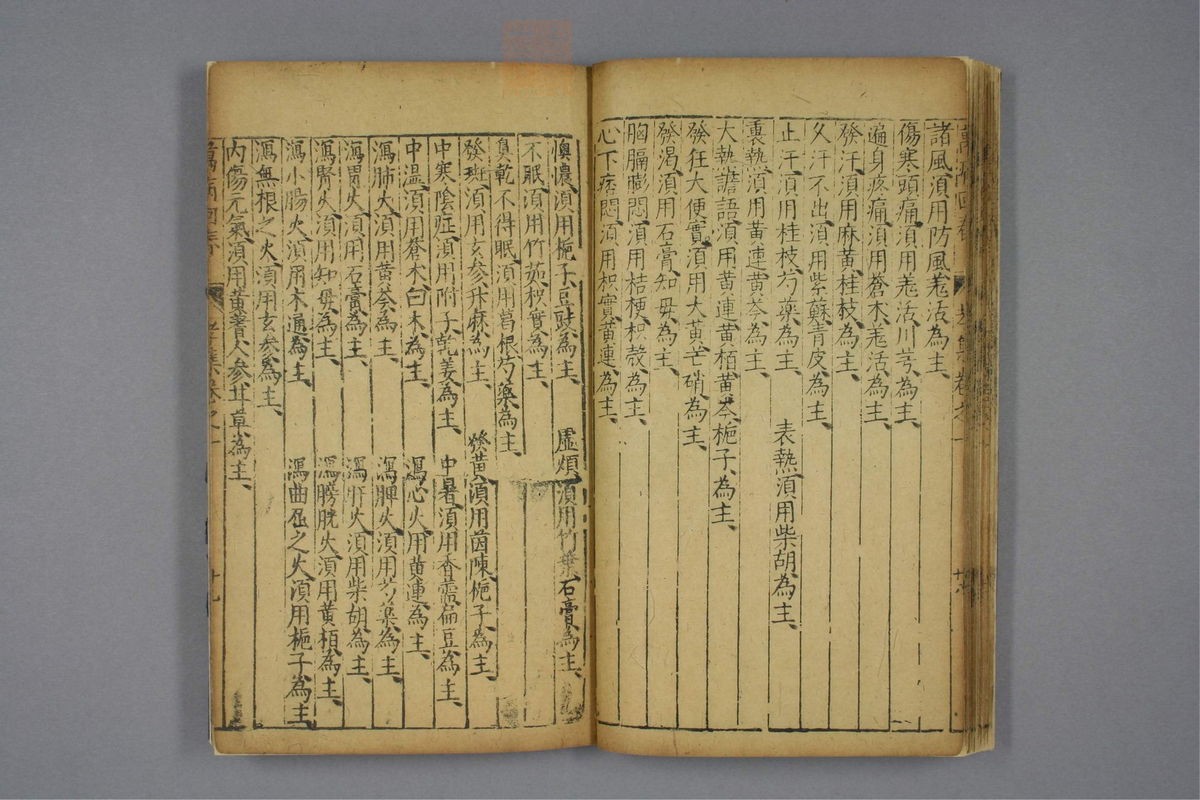 萬病回春 卷之一
諸風須用防風羌活為主、
傷寒頭痛須用羌活川芎為主、
遍身疼痛須用蒼朮羌活為主、
發汗須用麻黄桂枝為主、
久汗不出須用紫蘇青皮為主、
止汗須用桂枝芍藥為主、 表熱須用柴胡為主、
裏熱須用黄連黄芩為主、
大熱譫語須用黄連黄栢黄芩梔子為主、
發狂大便實須用大黄芒硝為主、
發渴須用石膏知毋為主、
胸膈膨悶須用桔梗枳殼為主、
心下痞悶須用枳實黄連為主、
懊憹須用梔子豆豉為主、 虛煩須用竹葉石膏為主、
不眠須用竹茹枳實為主、
鼻乾不得眠須用葛根芍藥為主、
發斑須用玄參升麻為主、 發黄須用茵陳梔子為主、
中寒陰症須用附子乾姜為主、 中暑須用香薷扁豆為主、
中濕須用蒼朮白朮為主、 瀉心火用黄連為主、
瀉肺火須用黄芩為主、 瀉脾火須用芍藥為主、
瀉胃火須用石膏為主、 瀉肝火須用柴胡為主、
瀉腎火須用知毋為主、 瀉膀胱火須用黄栢為主、
瀉小腸火須用木通為主、 瀉曲屈之火須用梔子為主、
瀉無根之火須用玄參為主、
内傷元氣須用黄耆人參甘草為主、
萬病回春 卷之一 廿九